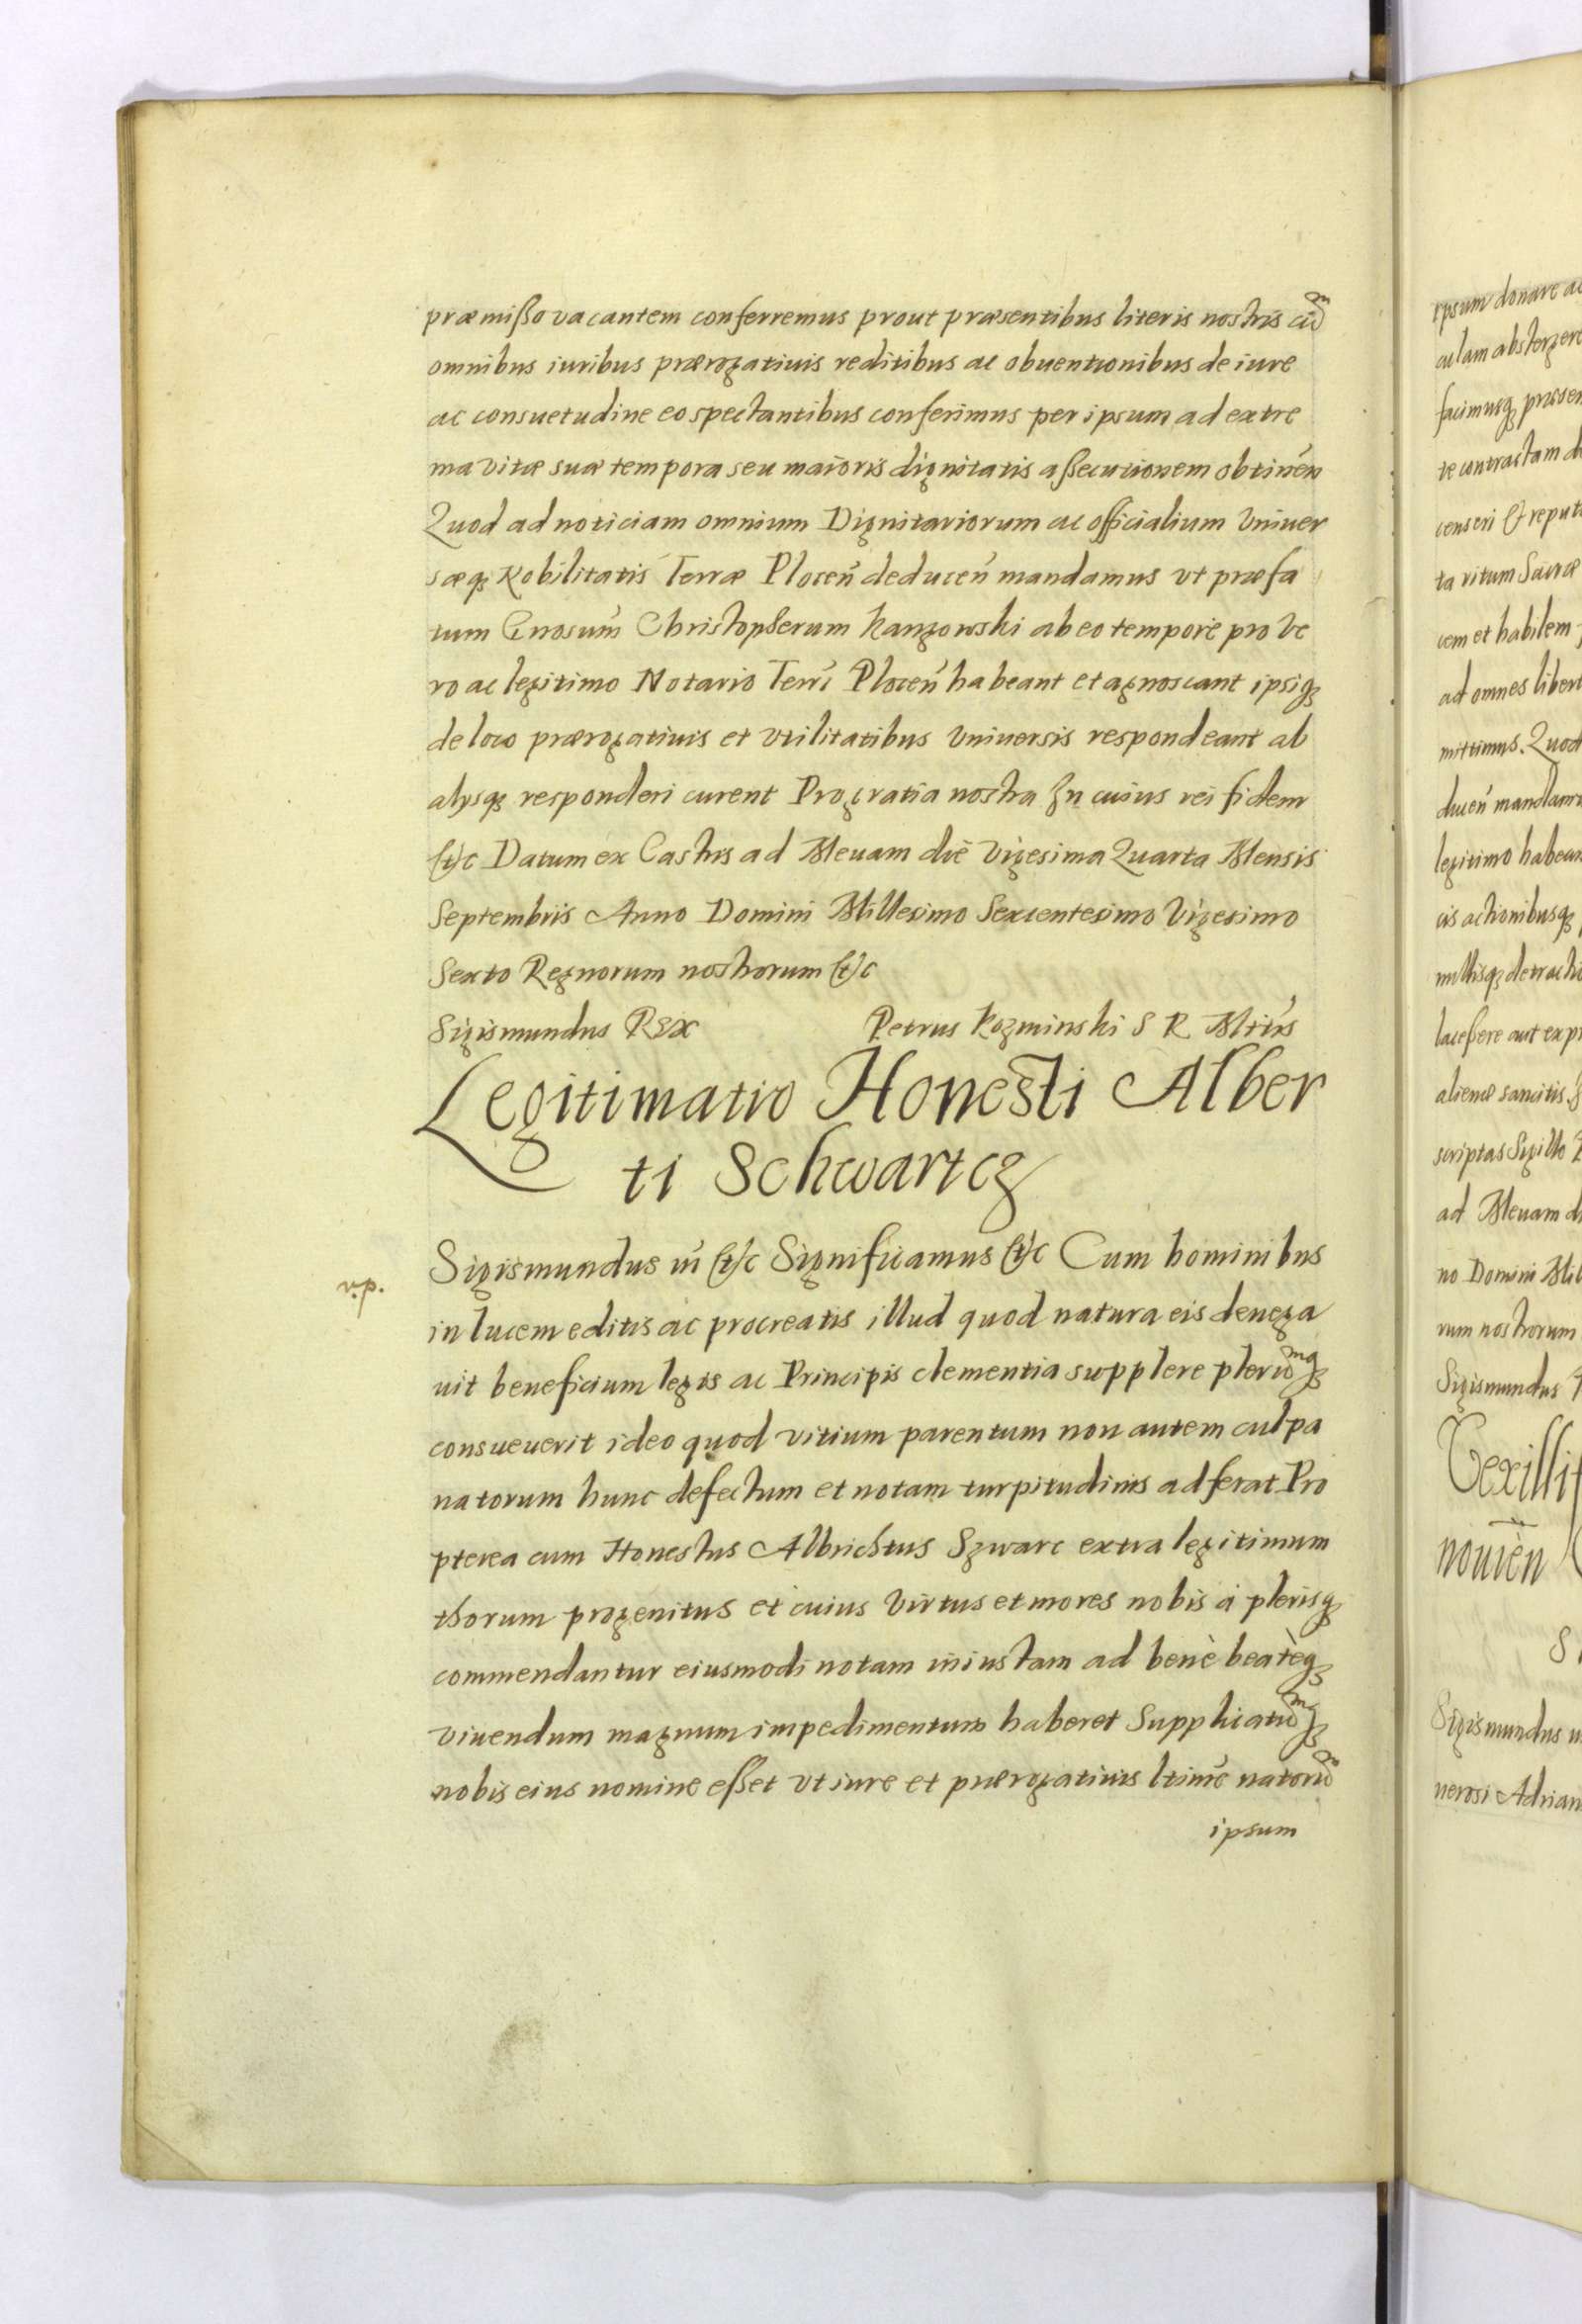 præmißo vacantem conferremus prout præsentibus literis nostris cum
omnibus iuribus prærogatiuis reditibus ac obuentionibus de iure
ac consuetudine eo spectantibus conferimus per ipsum ad extre
ma vitæ suæ tempora seu maioris dignitatis aßecutionem obtineń
Quod ad noticiam omnium Dignitariorum ac officialium Vniuer
sæq Nobilitatis Terræ Ploceń deduceń mandamus vt præfa
tum Gnosum Christopherum Kanzowski ab eo tempore pro Ve
ro ac legitimo Notario Terrj Ploceń habeant et agnoscant ipsiq
de loco prærogatiuis et vtilitatibus Vniuersis respondeant ab
alysq responderi curent Pro gratia nostra In cuius rei fidem
etc Datum ex Castris ad Meuam die Vigesima Quarta Mensis
Septembris Anno Domini Millesimo Sexcentesimo Vigesimo
Sexto Regnorum nostrorum etc
Sigismundus Rex Petrus Kozminski S R Mttis
Legitimatio Honesti Alber
ti Schwartcz
Sigismundus iii etc Significamus etc Cum hominibus
in lucem editis ac procreatis illud quod natura eis denega
uit beneficium legis ac Principis clementia supplere plerumq
consueuerit ideo quod vitium parentum non autem culpa
natorum hunc defectum et notam turpitudinis adferat Pro
pterea cum Honestus Albrichtus Szwarc extra legitimum
thorum progenitus et cuius Virtus et mores nobis à plerisq
commendantur eiusmodi notam iniustam ad benè beatèq
viuendum magnum impedimentum haberet Supplicatumq
nobis eius nomine eßet vt iure et prærogatiuis ltimè natorum
ipsum
ipsum donare ac
culam absterger
facimusq præsen
te contractam
censeri & reput
ta ritum Sacræ
cem et habilem
ad omnes libert
mittimus. Quod
duceń mandam
legitimo habean
cis actionibusq
nullisq detracti
laceßere aut exp
alienè sancitis.
scriptas Sigillo
ad Meuam d
no Domini Mil
rum nostrorum
Sigismundus
Vexilli
nouień
Sigismundus
nerosi Adrian